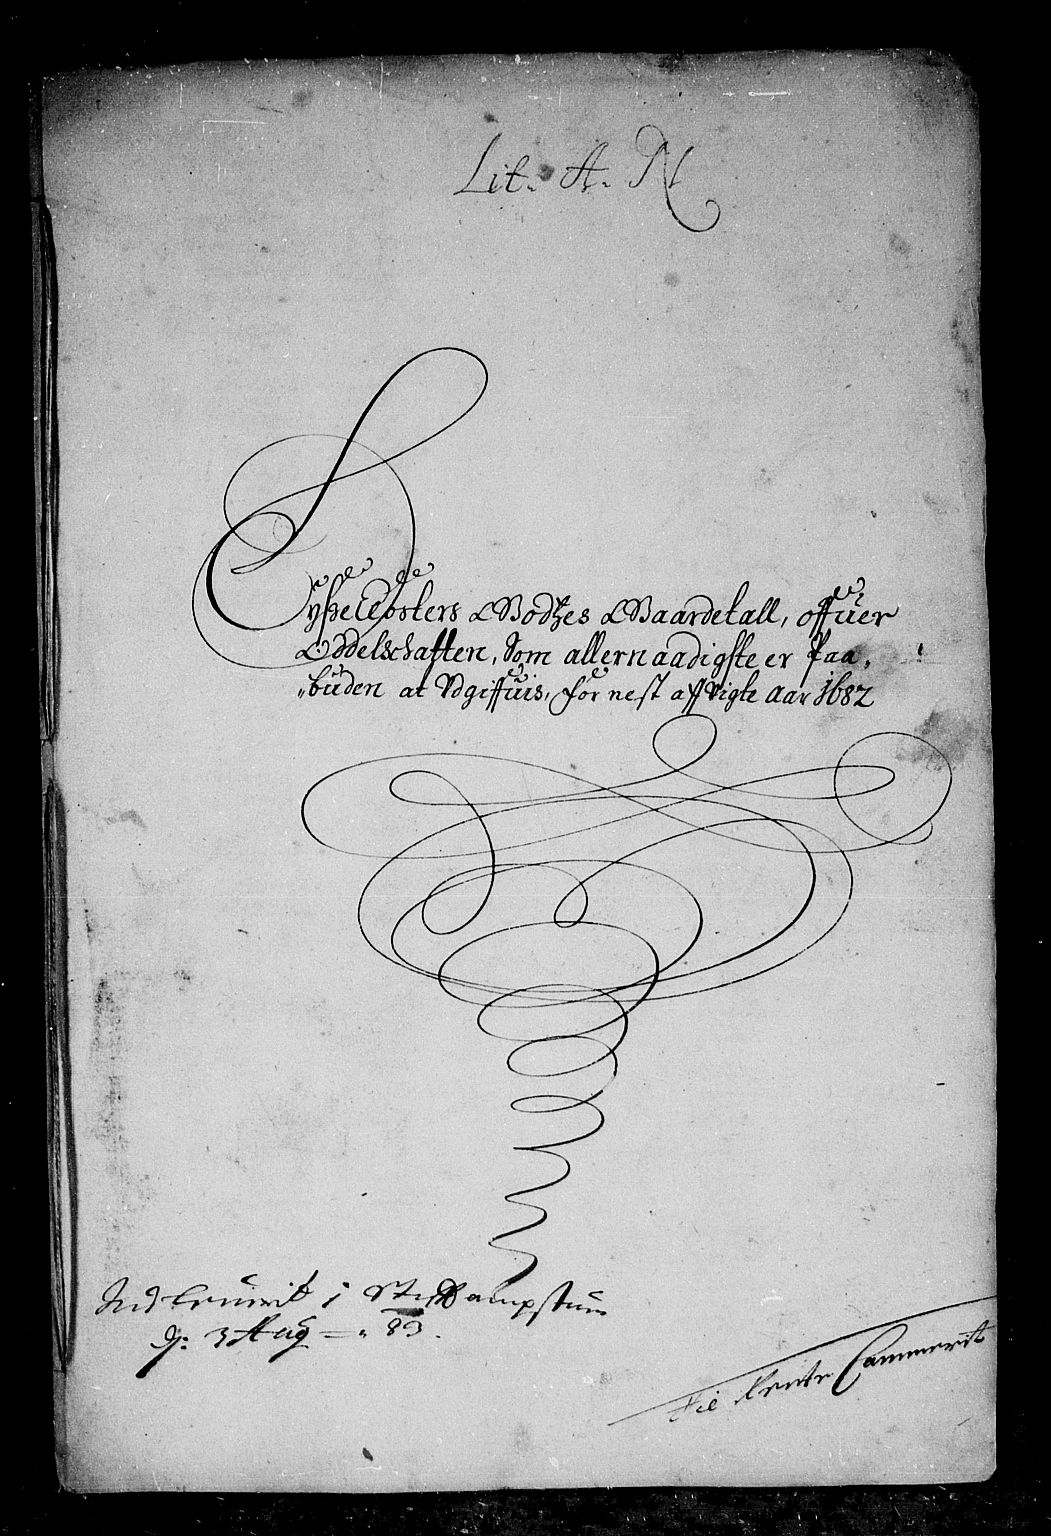 Lit. A. N
Lyßeclosters Godtzes Gaardetall, offuer
Oddelschaften, Som allernaadigste er Paa,
„buden at Vdgiffuis, for nest affvigte aar 1682
Indleuerit i Stifftampstuen
d: 3 Aug — 83.
Til Rente Cammerit